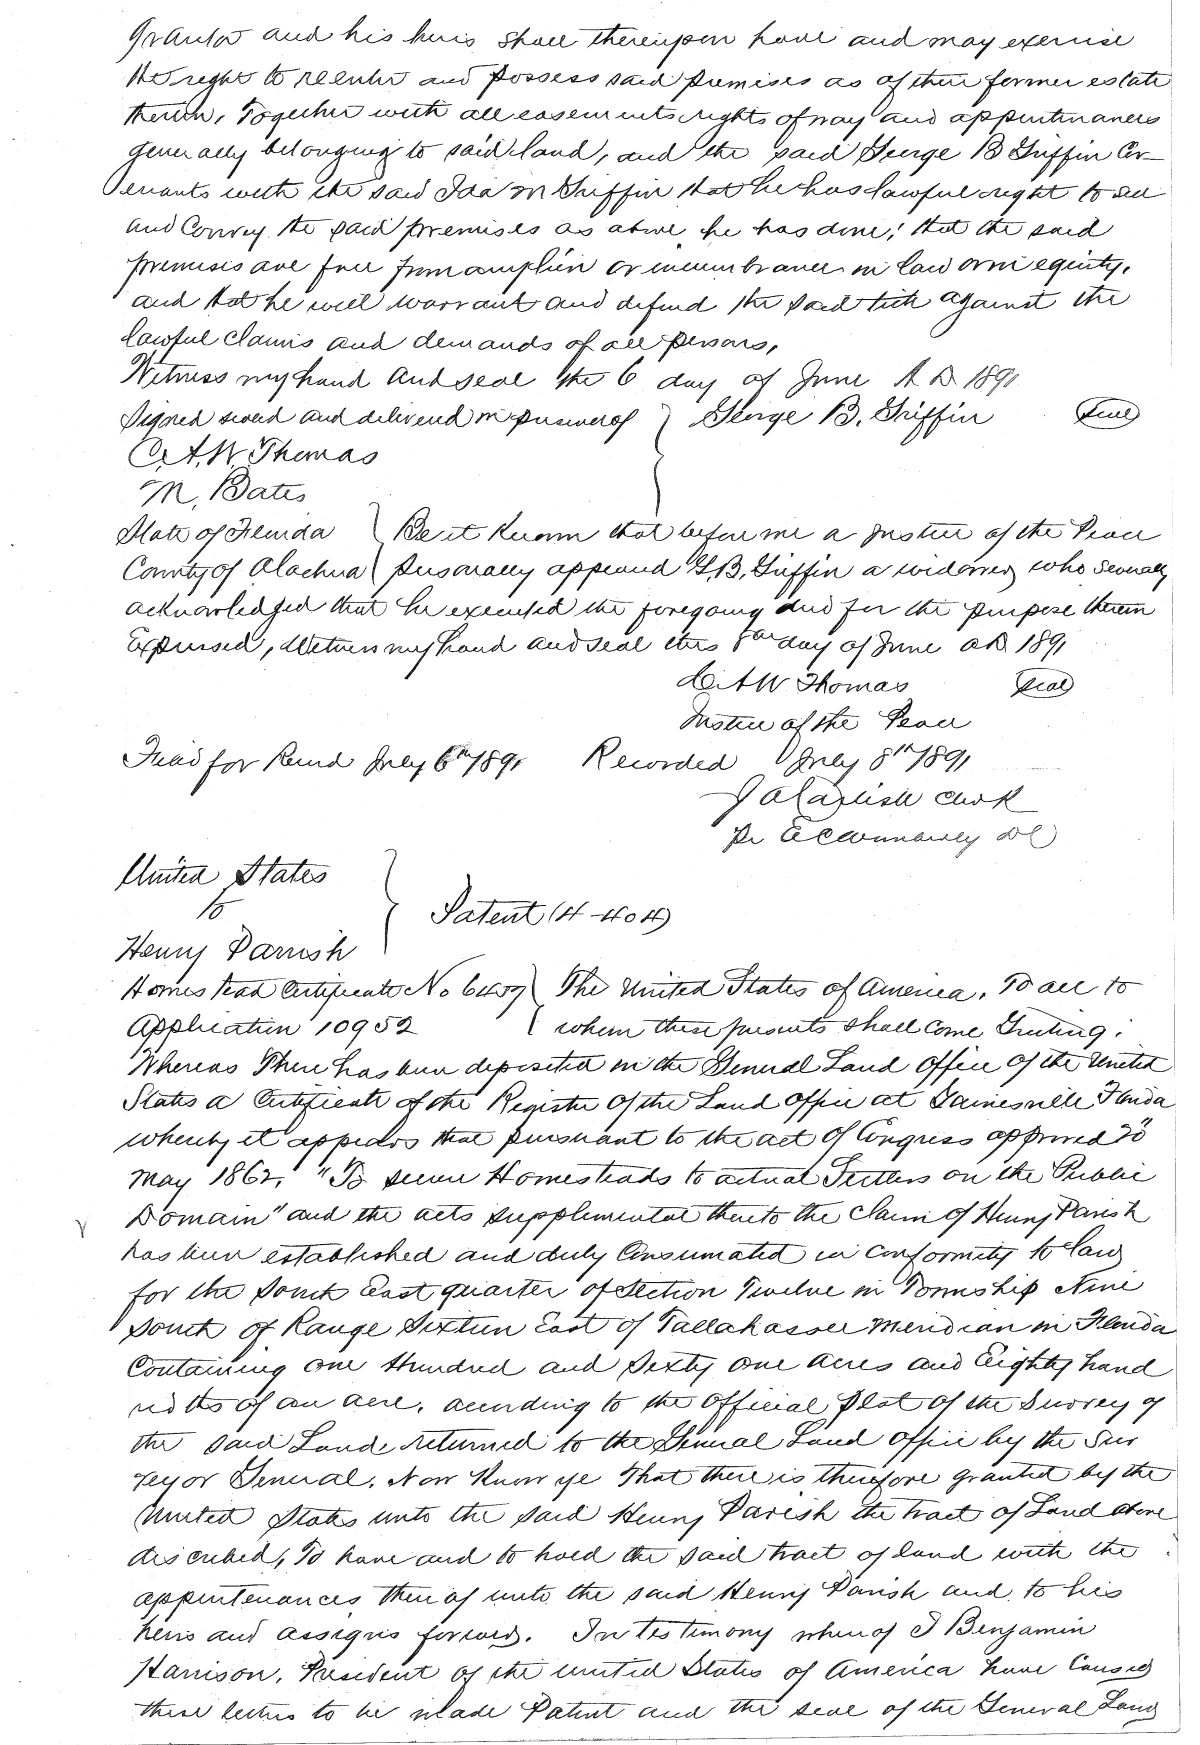 Grantor and his heirs shall thereupon have and may exercise
the right to reenter and possess said premises as of their former estate
therein, Together with all easements rights of way and appurtenances
generally belonging to said land, and the said George B Griffin Cov-
enants with the said Ida M Griffin that he has lawful right to sell
and Convey the said premises as above he has done; that the said
premises are free from or incumbrances in law or in equity,
and that he will warrant and defend the said title against the
lawful claims and demands of all persons,
Witness my hand and seal the 6 day of June A D 1891
Signed sealed and delivered in presence of } George B. Griffin (Seal)
C. A. W. Thomas
M. Bates
State of Florida } Be it Known that before me a Justice of the Peace
County of Alachua } personally appeared G. B. Griffin a widower, who severally
acknowledged that he executed the foregoing deed for the purpose therein
Expressed, Witness my hand and seal this day of June A D 1891
C. A W Thomas (Seal)
Justice of the Peace
Filed for Record July 6th 1891 Recorded July 8th 1891
J A Carlisle Clerk
Pr E C Wimberly DC
United States
to } Patent (4-404)
Henry Parrish
Homestead Certificate No } The United States of America, To all to
Application 10952 } whom these presents shall come Greeting:
Whereas There has been deposited in the General Land Office of the United
States a Certificate of the Register of the Land Office at Gainesville Florida
whereby it appears that pursuant to the act of Congress approved 20"
May 1862, "To secure Homesteads to actual Settlers on the Public
Domain" and the acts supplemental thereto the Claim of Henry Parish
has been established and duly Consumated in conformity to law
for the South East quarter of Section Twelve in Township Nine
South of Range Sixteen East of Tallahassee Meridian in Florida
Containing one Hundred and Sixty one Acres and Eighty hund
redths of an acre, according to the Official Plat of the Survey of
the said Lands returned to the General Land Office by the Sur
veyor General. Now Know ye That there is therefore granted by the
United States unto the said Henry Parish the tract of Land above
described, To have and to hold the said tract of land with the
appurtenances thereof unto the said Henry Parish and to his
heirs and assigns forever. In testimony whereof I Benjamin
Harrison, President of the United States of America have Caused
these letters to be made Patent and the seal of the General Land